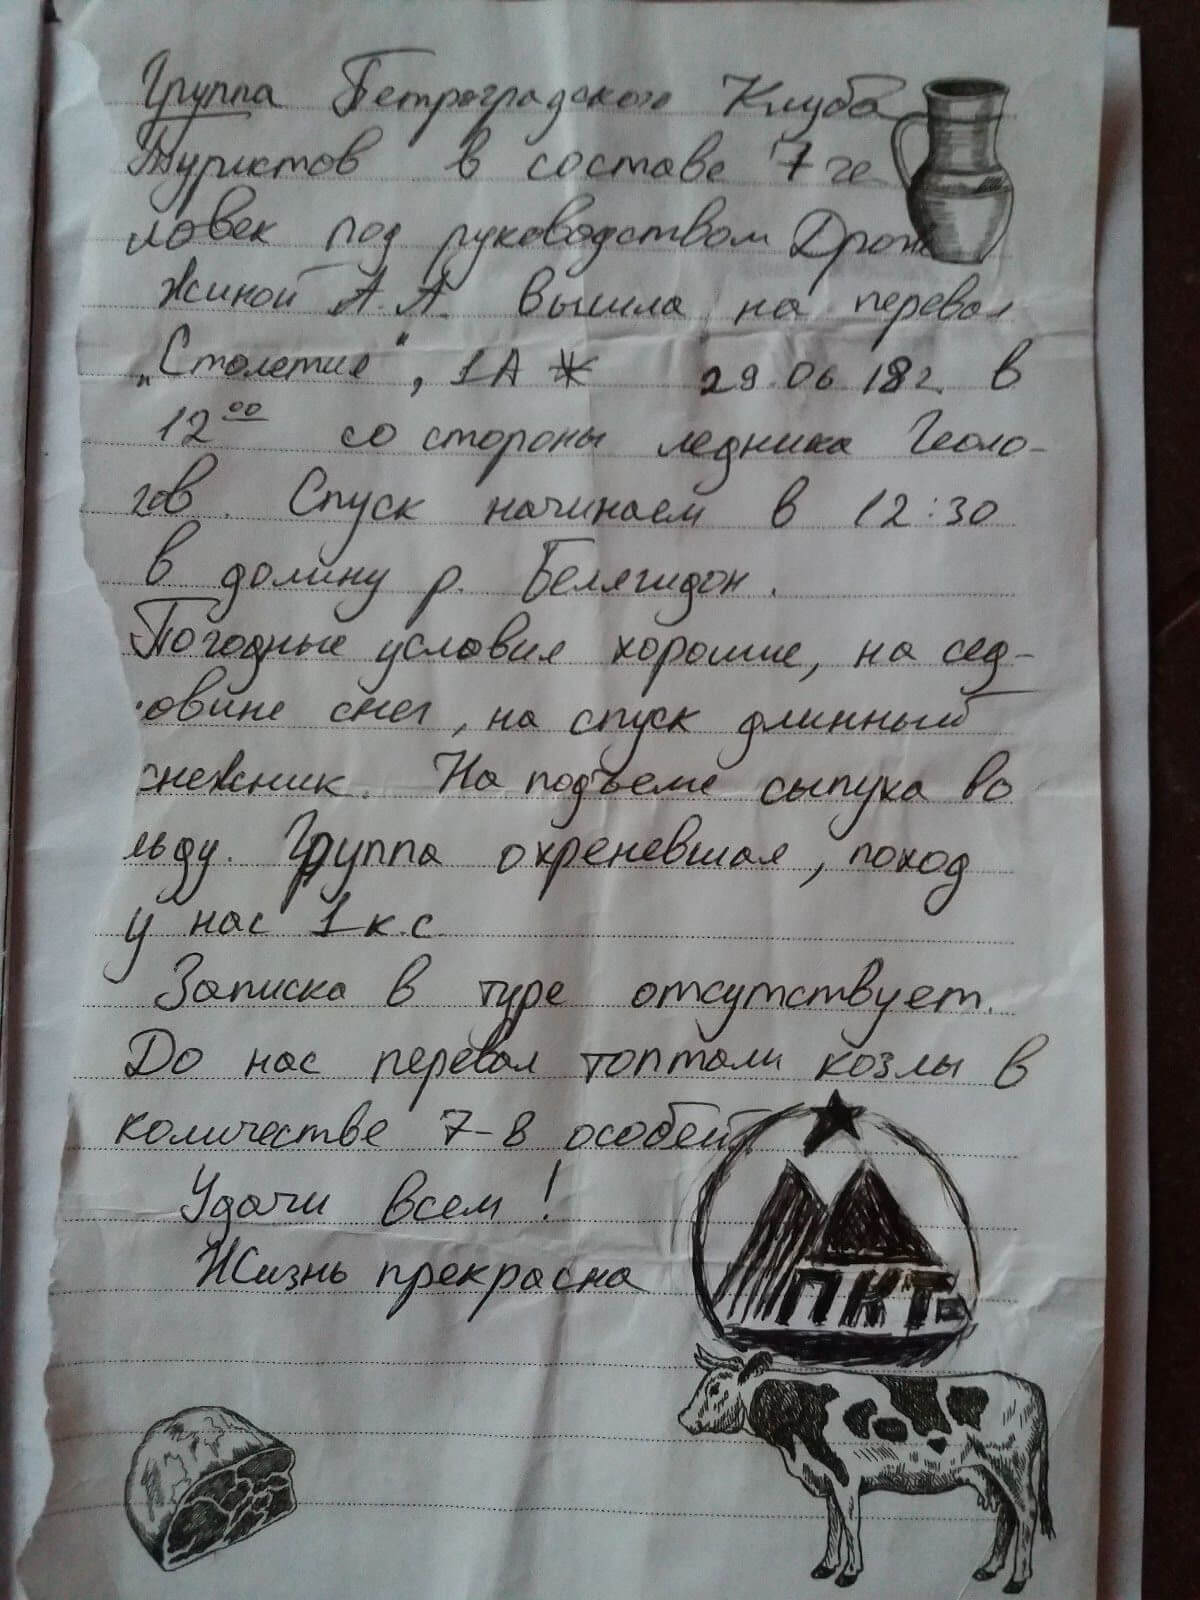 Группа Петроградского Клуба
Туристов в составе 7 че
ловек под руководством Дрож
жиной А.А. вышла на перевал
„Столетие", 1А Ж 29.06.18г. в
12⁰⁰ со стороны ледника Геоло-
гов. Спуск начинаем в 12:30
в долину р. Белягидон.
Погодные условия хорошие, на сед-
ловине снег, на спуск длинный
снежник. На подъеме сыпуха во
льду. Группа охреневшая, поход
у нас 1 к.с.
Записка в туре отсутствует.
До нас перевал топтали козлы в
количестве 7-8 особей.
Удачи всем!
Жизнь прекрасна
ПКТ